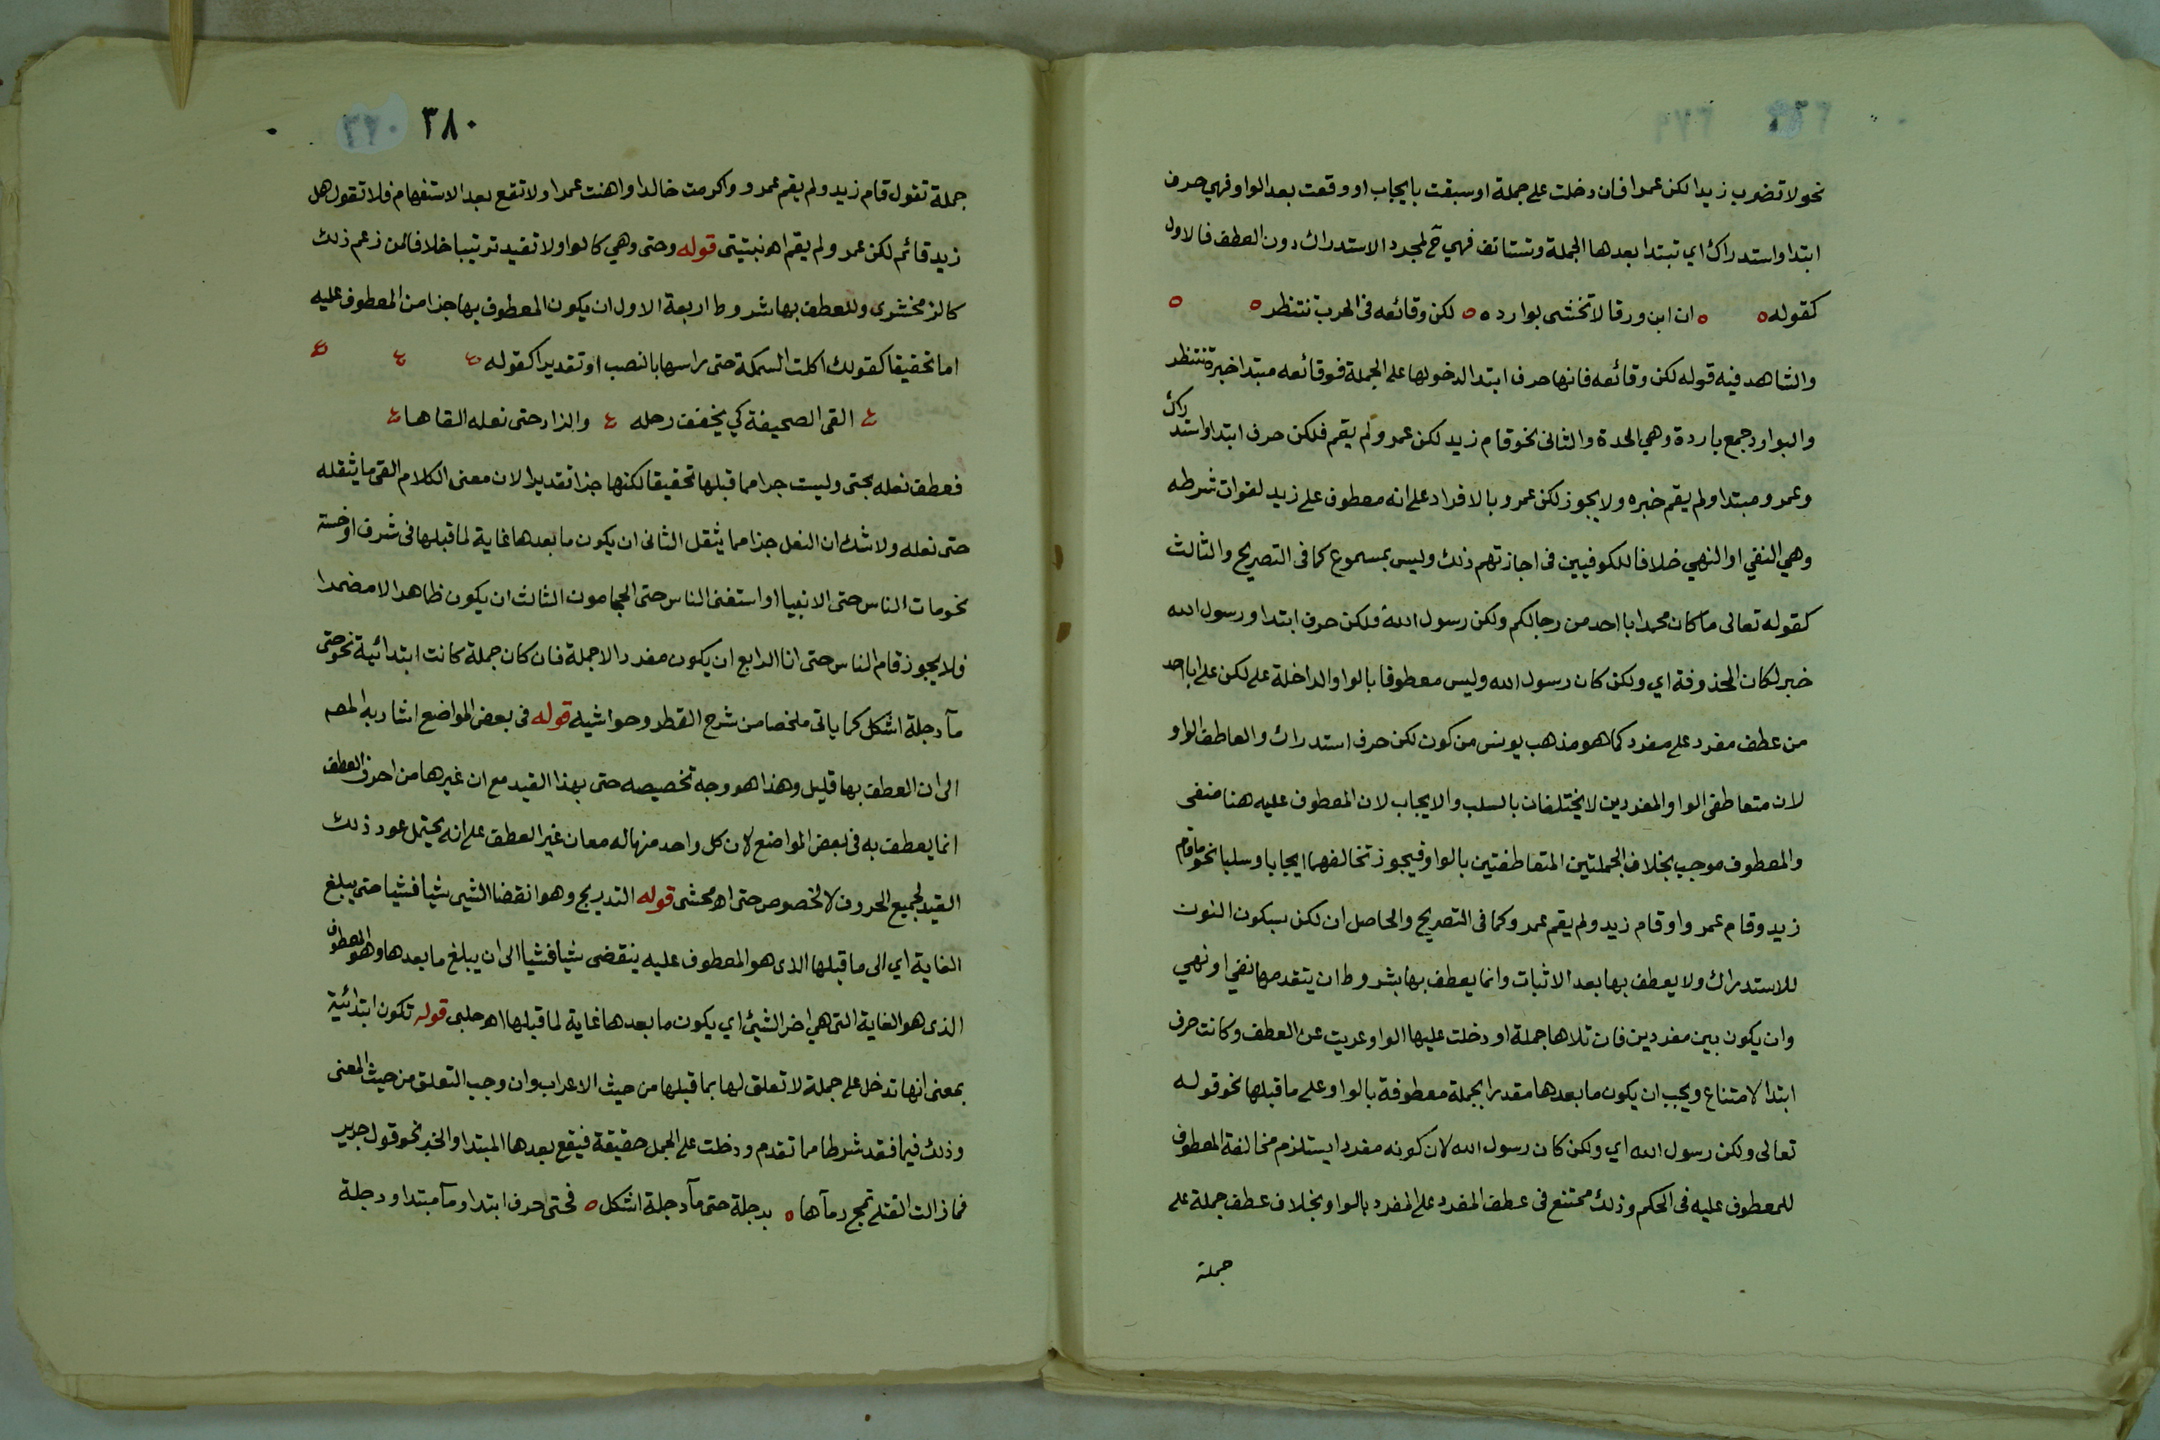 نحو لا تضرب زيدا لكن عمرا فان دخلت على جملة او سبقت بايجاب او وقعت بعد الواو فهي حرف
ابتدا واستدراك اي تبتدا بعدها الجملة وتستانف فهي ح لمجرد الاستدراك دون العطف فالاول
كقوله ان ابن ورقا لا تخشى بوارده لكن وقائعه في الحرب تنتظر
والشاهد فيه قوله لكن وقائعه فانها حرف ابتدا لدخولها على الجملة فوقائعه مبتدا خبره تنتظر
والبوارد جمع باردة وهي الحدة والثاني نحو قام زيد لكن عمرو لم يقم فلكن حرف ابتدا واستدراك
وعمرو مبتدا ولم يقم خبره ولا يجوز لكن عمرو بالافراد على انه معطوف على زيد لفوات شرطه
وهي النفي او النهي خلافا للكوفيين في اجازتهم ذلك وليس بمسموع كما في التصريح والثالث
كقوله تعالى ما كان محمد ابا احد من رجالكم ولكن رسول الله فلكن حرف ابتدا ورسول الله
خبر لكان المحذوفة اي ولكن كان رسول الله وليس معطوفا بالواو الداخلة على لكن على ابا احد
من عطف مفرد على مفرد كما هو مذهب يونس من كون لكن حرف استدراك والعاطف الواو
لان متعاطفي الواو المفردين لا يختلفان بالسلب والايجاب لان المعطوف عليه هنا منفي
والمعطوف موجب بخلاف الجملتين المتعاطفتين بالواو فيجوز تخالفهما ايجابا وسلبا نحو ما قام
زيد وقام عمرو او قام زيد ولم يقم عمرو كما في التصريح والحاصل ان لكن بسكون النون
للاستدراك ولا يعطف بها بعد الاثبات وانما يعطف بها بشروط ان يتقدمها نفي او نهي
وان يكون بين مفردين فان تلاها جملة او دخلت عليها الواو عريت عن العطف وكانت حرف
ابتدا لامتناع ويجب ان يكون ما بعدها مقدرا بجملة معطوفة بالواو على ما قبلها نحو قوله
تعالى ولكن رسول الله اي ولكن كان رسول الله لان كونه مفردا يستلزم مخالفة المعطوف
للمعطوف عليه في الحكم وذلك ممتنع في عطف المفرد على المفرد بالواو بخلاف عطف جملة على
جملة
٣٨٠
جملة تقول قام زيد ولم يقم عمرو واكرمت خالدا واهنت عمرا ولا تقع بعد الاستفهام فلا تقول هل
زيد قائم لكن عمرو لم يقم اه نبتيتي قوله وحتى وهي كالواو لا تفيد ترتيبا خلافا لمن زعم ذلك
كالزمخشري وللعطف بها شروط اربعة الاول ان يكون المعطوف بها جزا من المعطوف عليه
اما تحقيقا كقولك اكلت السمكة حتى راسها بالنصب او تقديرا كقوله
القى الصحيفة كي يخفف رحله والزاد حتى نعله القاها
فعطف نعله بحتى وليست جزا مما قبلها تحقيقا لكنها جزا تقديرا لان معنى الكلام القى ما يثقله
حتى نعله ولا شك ان النعل جزا مما يثقل الثاني ان يكون ما بعدها غاية لما قبلها في شرف او خسة
نحو مات الناس حتى الانبيا او استغنى الناس حتى الحجامون الثالث ان يكون ظاهرا لا مضمرا
فلا يجوز قام الناس حتى انا الرابع ان يكون مفردا لا جملة فان كان جملة كانت ابتدائية نحو حتى
مآ دجلة اشكل كما ياتي ملخصا من شرح القطر وحواشيه قوله في بعض المواضع اشار به المصم
الى ان العطف بها قليل وهذا هو وجه تخصيصه حتى بهذا القيد مع ان غيرها من احرف العطف
انما يعطف به في بعض المواضع لان كل واحد منها له معان غير العطف على انه يحتمل عود ذلك
القيد لجميع الحروف لا لخصوص حتى اه محشي قوله التدريج وهو انقضا الشيى شيا فشيا حتى يبلغ
الغاية اي الى ما قبلها الذى هو المعطوف عليه ينقضى شيا فشيا الى ان يبلغ ما بعدها وهو المعطوف
الذى هو الغاية التي هي اخر الشيئ اي يكون ما بعدها غاية لما قبلها اه حلبي قوله تكون ابتدائية
بمعنى انها تدخل على جملة لا تعلق لها بما قبلها من حيث الاعراب وان وجب التعلق من حيث المعنى
وذلك فيما فقد شرطا مما تقدم ودخلت على الجمل حقيقة فيقع بعدها المبتدا والخبر نحو قول جرير
فما زالت القتلى تمج دمآها بدجلة حتى مآ دجلة اشكل فحتى حرف ابتدا ومآ مبتدا ودجلة